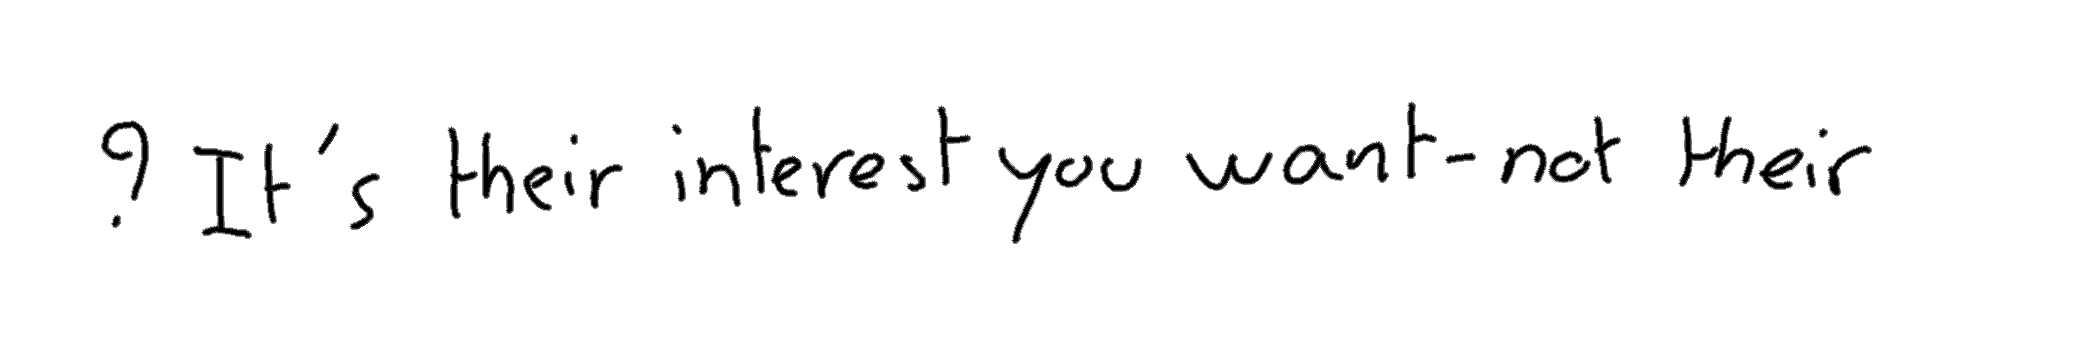 ? It's their interest you want-not their